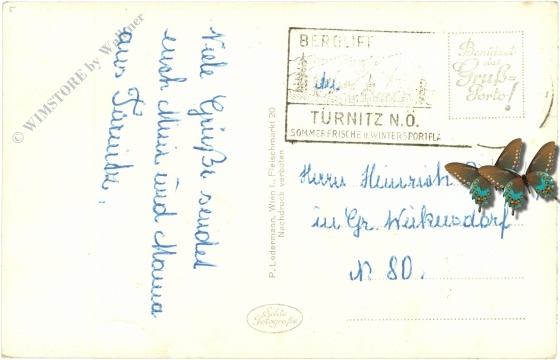 Viele Grüße sendet
euch Mimi und Mama
aus Türnitz.
© WIMSTORE by Wagner
P. Ledermann, Wien I., Fleischmarkt 20
Nachdruck verboten
BERGLIFT
TÜRNITZ N.Ö.
SOMMERFRISCHE u. WINTERSPORTPL.
Benützet
das
Gruß=
Porto!
Herrn Heinrich
in Gr. Weikersdorf
Nr 80.
Echte
Fotografie